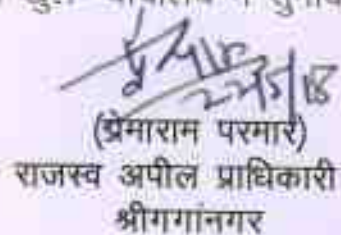 22/5/18
(प्रेमाराम परमार)
राजस्व अपील प्राधिकारी
श्रीगगांनगर